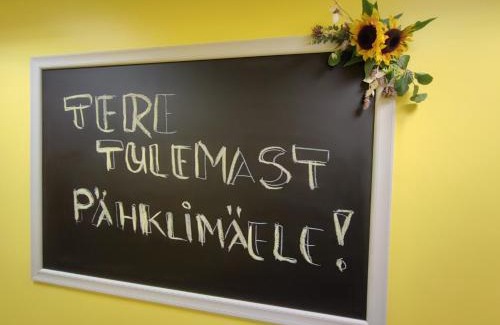 TERE
TULEMAST
PÄHKLIMÄELE!